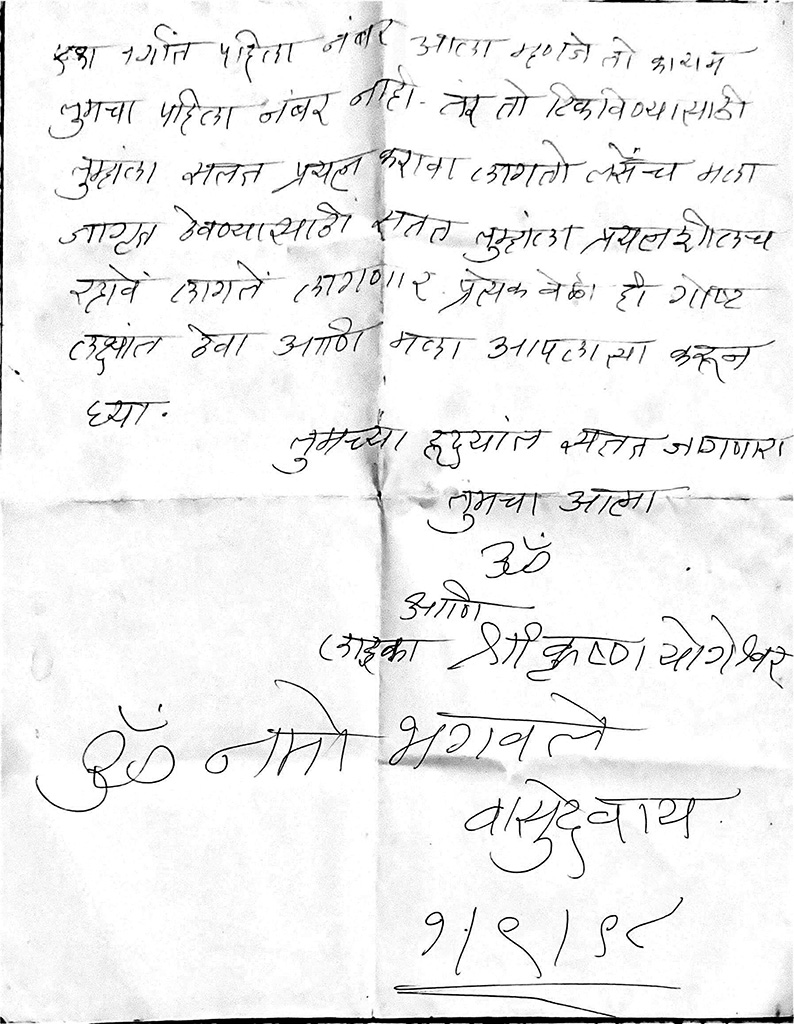 एका वर्गात पहिला नंबर आला म्हणजे तो कायम
तुमचा पहिला नंबर नाही. तर तो टिकविण्यासाठी
तुम्हांला सतत प्रयत्न करावा लागतो तसेंच मला
जागृत ठेवण्यासाठी सतत तुम्हांला प्रयत्नशीलच
रहावें लागतें लागणार. प्रत्येक वेळी ही गोष्ट
लक्ष्यांत ठेवा आणि मला आपलासा करून
घ्या.
तुमच्या हृदयांत सतत जागणारा
तुमचा आत्मा
ॐ
आणि
लाडका श्रीकृष्ण योगेश्वर
ॐ नमो भगवते
वासुदेवाय
१।९।९८